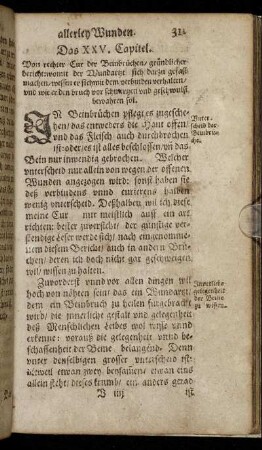 allerley Wunden. 311
Das XXV. Capitel.
Von rechter Cur der Beinbrüchen/ gründlicher
bericht: womit der Wundartzt sich darzu gefaßt
machen/ wessen er sich mit dem verbinden verhalten/
und wie er den bruch vor schmertzen und geschwulst
bewahren sol.
IN Beinbrüchen pfleget es zugesche-
hen/ das entweders die Haut offen/
und das Fleisch auch durchbrochen
ist: oder/ es ist alles beschlossen/ un das
Bein nur inwendig gebrochen. Welcher
unterscheid nur allein von wegen der offenen
Wunden angezogen wird: sonst haben sie
deß verbindens unnd curierens halben
wenig unterscheid. Deßhalben/ wil ich diese
meine Cur nur meistlich auff ein art
richten: besser zuversicht/ der günstige ver-
stendige Leser werde sich/ nach eingenomme-
nem diesem Bericht/ auch in andere Brü-
chen/ deren ich doch nicht gar geschweigen
wil/ wissen zu halten.
Zuvorderst unnd vor allen dingen wil
hoch von nöhten sein/ das ein Wundartzt
dem ein Beinbruch zu heilen fürgebracht
wird/ die innerliche gestalt und gelegenheit
deß Menschlichen Leibes wol wisse unnd
erkenne: vorauß die gelegenheit unnd be-
schaffenheit der Beine belangend. Denn
unter denselbigen grosser unterscheid ist:
dieweil etwan zwey beysamen/ etwan eins
allein steht: dieses krumb/ ein anders gerad
V iiij ist
Unter-
scheid der
Beinbrü-
che.
Innerliche
gelegenheit
der Beine
zu wissen.